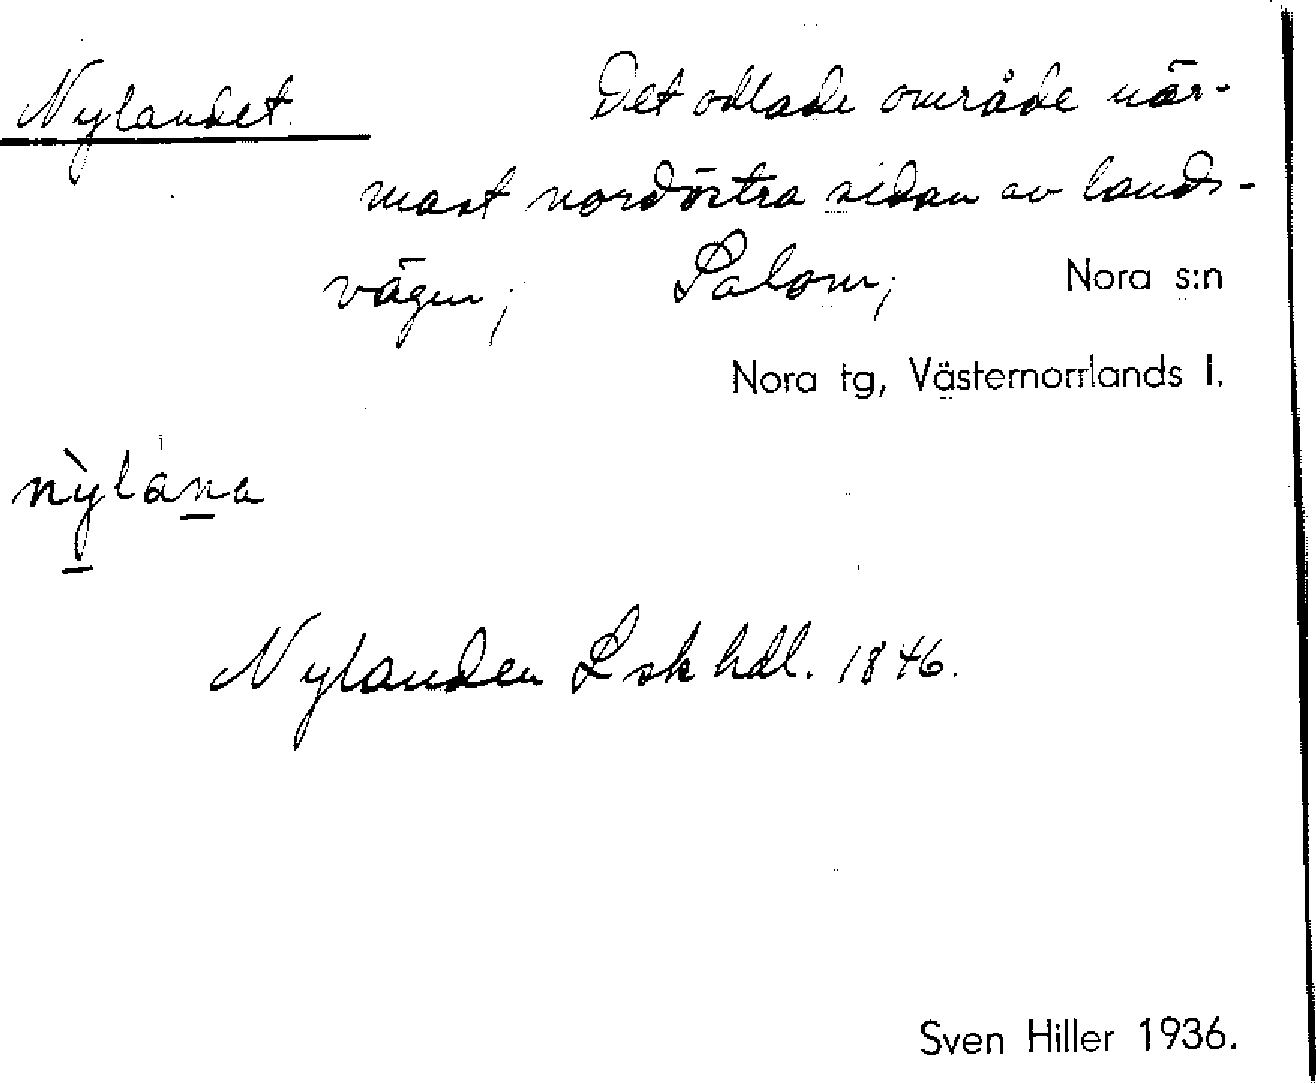 Nylandet. Det odlade område när-
mast nordöstra sidan av lands-
vägen; Salom; Nora s:n
Nora tg, Västernorrlands l.
nỳlána
Nylanden Lskhdl. 1846.
Sven Hiller 1936.